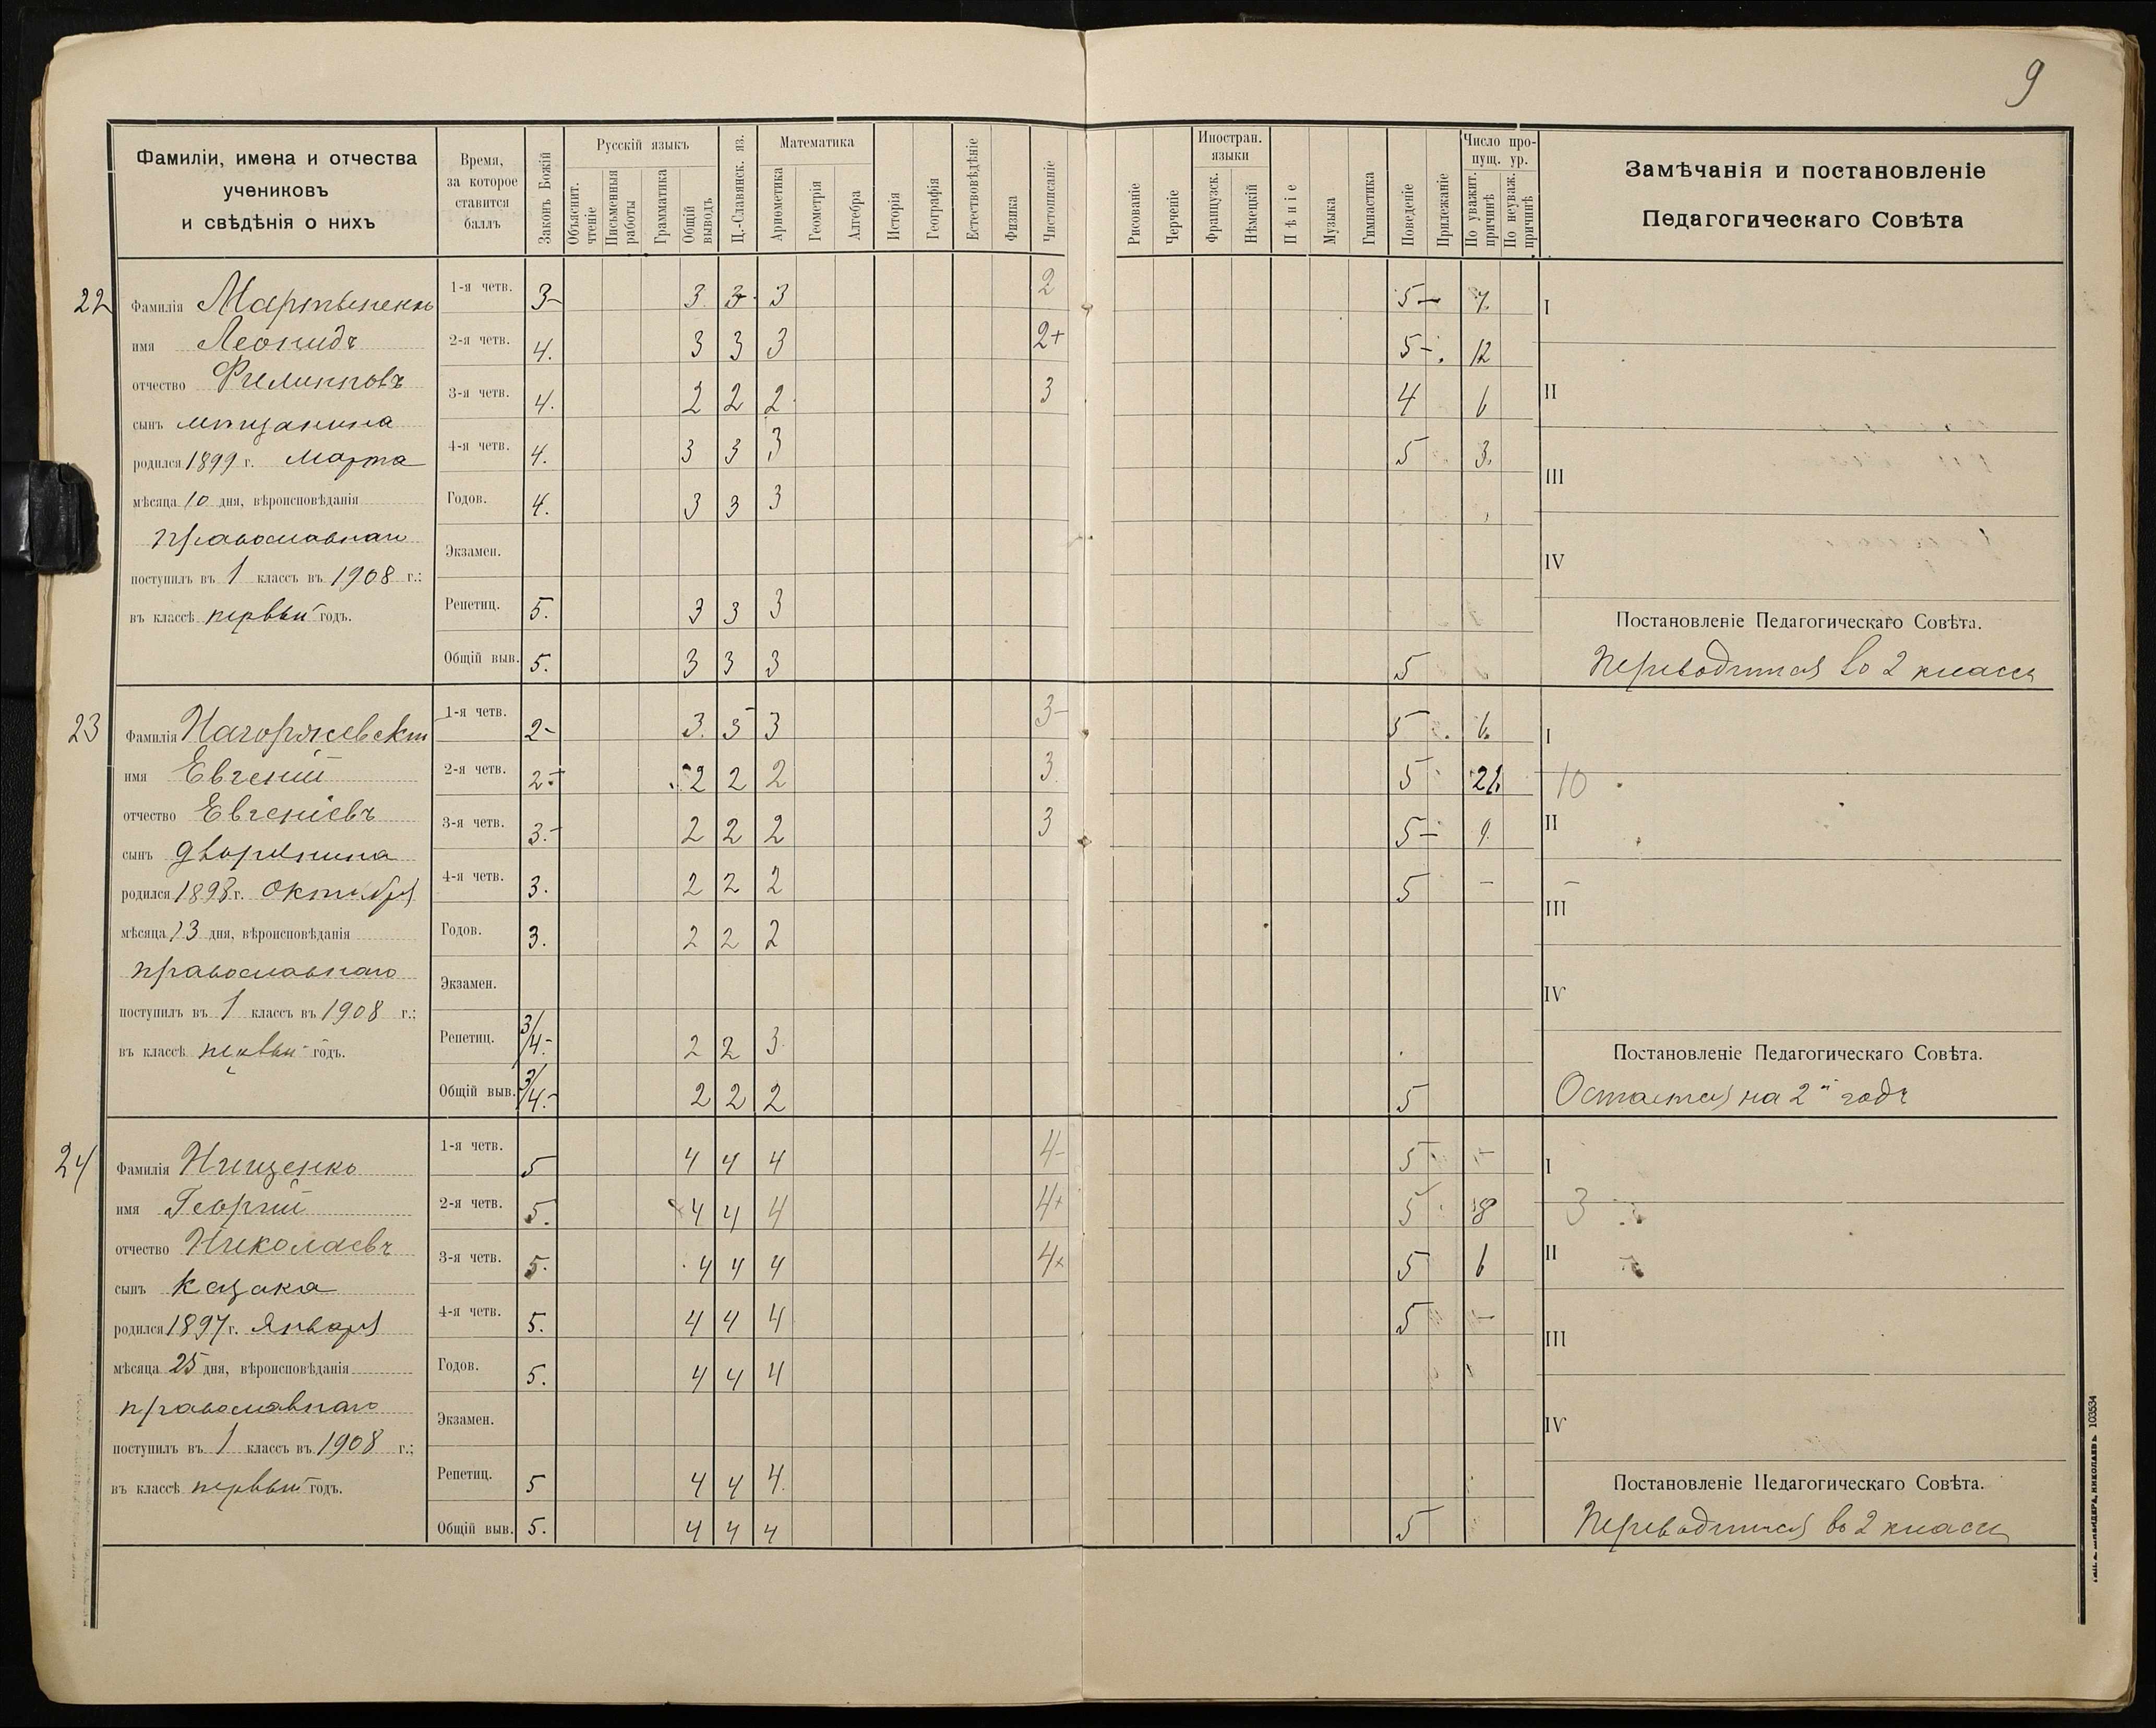 9
Фамиліи, имена и отчества
учениковъ
и свѣдѣнія о нихъ
Время,
за которое
ставится
баллъ
Законъ Божій
Русскій языкъ
Объяснит.
чтеніе
Письменныя
работы
Грамматика
Общій
выводъ
Ц.-Славянск. яз.
Математика
Ариѳметика
Геометрія
Алгебра
Исторія
Географія
Естествовѣдѣніе
Физика
Чистописаніе
Рисованіе
Черченіе
Иностран.
языки
Французск.
Нѣмецкій
Пѣніе
Музыка
Гимнастика
Поведеніе
Прилежаніе
Число про-
пущ. ур.
По уважит.
причинѣ
По неуваж.
причинѣ
Замѣчанія и постановленіе
Педагогическаго Совѣта
22
Фамилія Мартыненко
имя Леонидъ
отчество Филипповъ
сынъ мѣщанина
родился 1899 г. Марта
мѣсяца 10 дня, вѣроисповѣданія
православнаго
поступилъ въ 1 классъ въ 1908 г.:
въ классѣ первый годъ.
1-я четв. 3- 3 3 3 2 5- 7.
2-я четв. 4. 3 3 3 2+ 5-. 12
3-я четв. 4. 2 2 2 3 4 6
4-я четв. 4. 3 3 3 5 3.
Годов. 4. 3 3 3
Экзамен.
Репетиц. 5. 3 3 3
Общій выв. 5. 3 3 3 5
I
II
III
IV
Постановленіе Педагогическаго Совѣта.
Переводится во 2 классъ
23
Фамилія Нагоржевскій
имя Евгеній
отчество Евгеніевъ
сынъ дворянина
родился 1898 г. Октября
мѣсяца 13 дня, вѣроисповѣданія
православнаго
поступилъ въ 1 классъ въ 1908 г.:
въ классѣ первый годъ.
1-я четв. 2- 3. 3 3 3- 5 6.
2-я четв. 2+ 2 2 2 3 5 21. 10
3-я четв. 3.- 2 2 2 3 5- 9.
4-я четв. 3. 2 2 2 5 -
Годов. 3. 2 2 2
Экзамен.
Репетиц. 3/4.- 2 2 3
Общій выв. 3/4.- 2 2 2 5
I
II
III
IV
Постановленіе Педагогическаго Совѣта.
Остается на 2й годъ
24
Фамилія Нищенко
имя Георгій
отчество Николаевъ
сынъ Казака
родился 1897 г. Января
мѣсяца 25 дня, вѣроисповѣданія
православнаго
поступилъ въ 1 классъ въ 1908 г.;
въ классѣ первый годъ.
1-я четв. 5 4 4 4 4- 5 -
2-я четв. 5. 4 4 4 4+ 5 18 3
3-я четв. 5. 4 4 4 4+ 5 6
4-я четв. 5. 4 4 4 5 -
Годов. 5. 4 4 4
Экзамен.
Репетиц. 5 4 4 4.
Общій выв. 5. 4 4 4 5
I
II
III
IV
Постановленіе Педагогическаго Совѣта.
Переводится во 2 классъ
НИКОЛАЕВЪ 103534